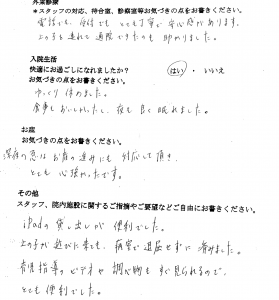 外来診療
＊スタッフの対応、待合室、診察室等お気づきの点をお書きください。
電話でも、受付でも とても丁寧で安心感があります。
上の子を連れて通院できたのも助かりました。
入院生活
快適にお過ごしになれましたか？ はい ・ いいえ
お気づきの点をお書きください。
ゆっくり休めました。
食事もおいしかったし、夜も良く眠れました。
お産
お気づきの点をお書きください。
深夜の急なお産の進みにも対応して頂き、
とても心強かったです。
その他
スタッフ、院内施設に関するご指摘やご要望などご自由にお書きください。
iPadの貸し出しが便利でした。
上の子が遊びに来ても、病室で退屈せずに済みました。
指導のビデオや調乳もすぐ見られるので、
とても便利でした。